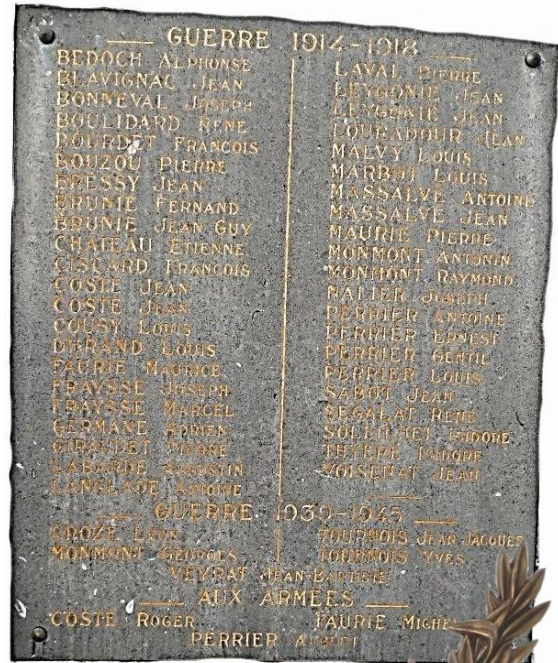 GUERRE 1914-1918
BEDOCH ALPHONSE
BLAVIGNAC JEAN
BONNEVAL JOSEPH
BOULIDARD RENE
BOURDET FRANCOIS
BOUZOU PIERRE
BRESSY JEAN
BRUNIE FERNAND
BRUNIE JEAN GUY
CHATEAU ETIENNE
CISCARD FRANCOIS
COSTE JEAN
COSTE JEAN
COUSY LOUIS
DURAND LOUIS
FAURIE MAURICE
FRAYSSE JOSEPH
FRAYSSE MARCEL
GERMANE ADRIEN
GIRAUDET PIERRE
LABORDE AUGUSTIN
LANGLADE ANTOINE
LAVAL PIERRE
LEYGONIE JEAN
LEYGNAIE JEAN
LOURADOUR JEAN
MALVY LOUIS
MARBOT LOUIS
MASSALVE ANTOINE
MASSALVE JEAN
MAURIE PIERRE
MONMONT ANTONIN
MONMONT RAYMOND
NALIER JOSEPH
PERRIER ANTOINE
PERRIER ERNEST
PERRIER GENTIL
PERRIER LOUIS
SABOT JEAN
SEGALAT RENE
ISIDORE
ISIDORE
VOISENAT JEAN
GUERRE 1939-1945
CROZE LEON
MONMONT GEORGES
TOURNOIS JEAN JACQUES
TOURNOIS YVES
VEYRAT JEAN BAPTISTE
AUX ARMEES
COSTE ROGER
FAURIE MICHEL
PERRIER ALBERT